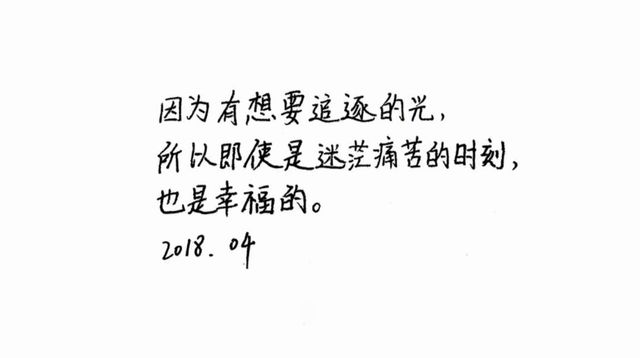 因为有想要追逐的光，
所以即使是迷茫痛苦的时刻，
也是幸福的。
2018.04